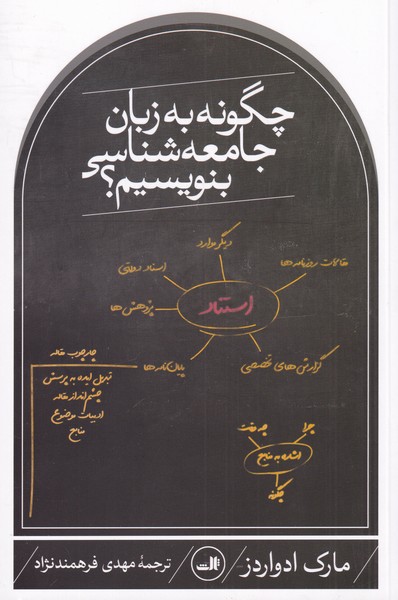 چگونه به زبان
جامعه‌شناسی
بنویسیم؟
دیگر موارد
اسناد دولتی
مقالات روزنامه ها
استناد
پژوهش ها
پایان نامه ها
گزارش های تخصصی
چارچوب مقاله
تبدیل ایده به پرسش
چشم انداز مقاله
ادبیات موضوع
منابع
چرا
چه وقت
اشاره به منابع
چگونه
مارک ادواردز
ثالث
ترجمهٔ مهدی فرهمندنژاد